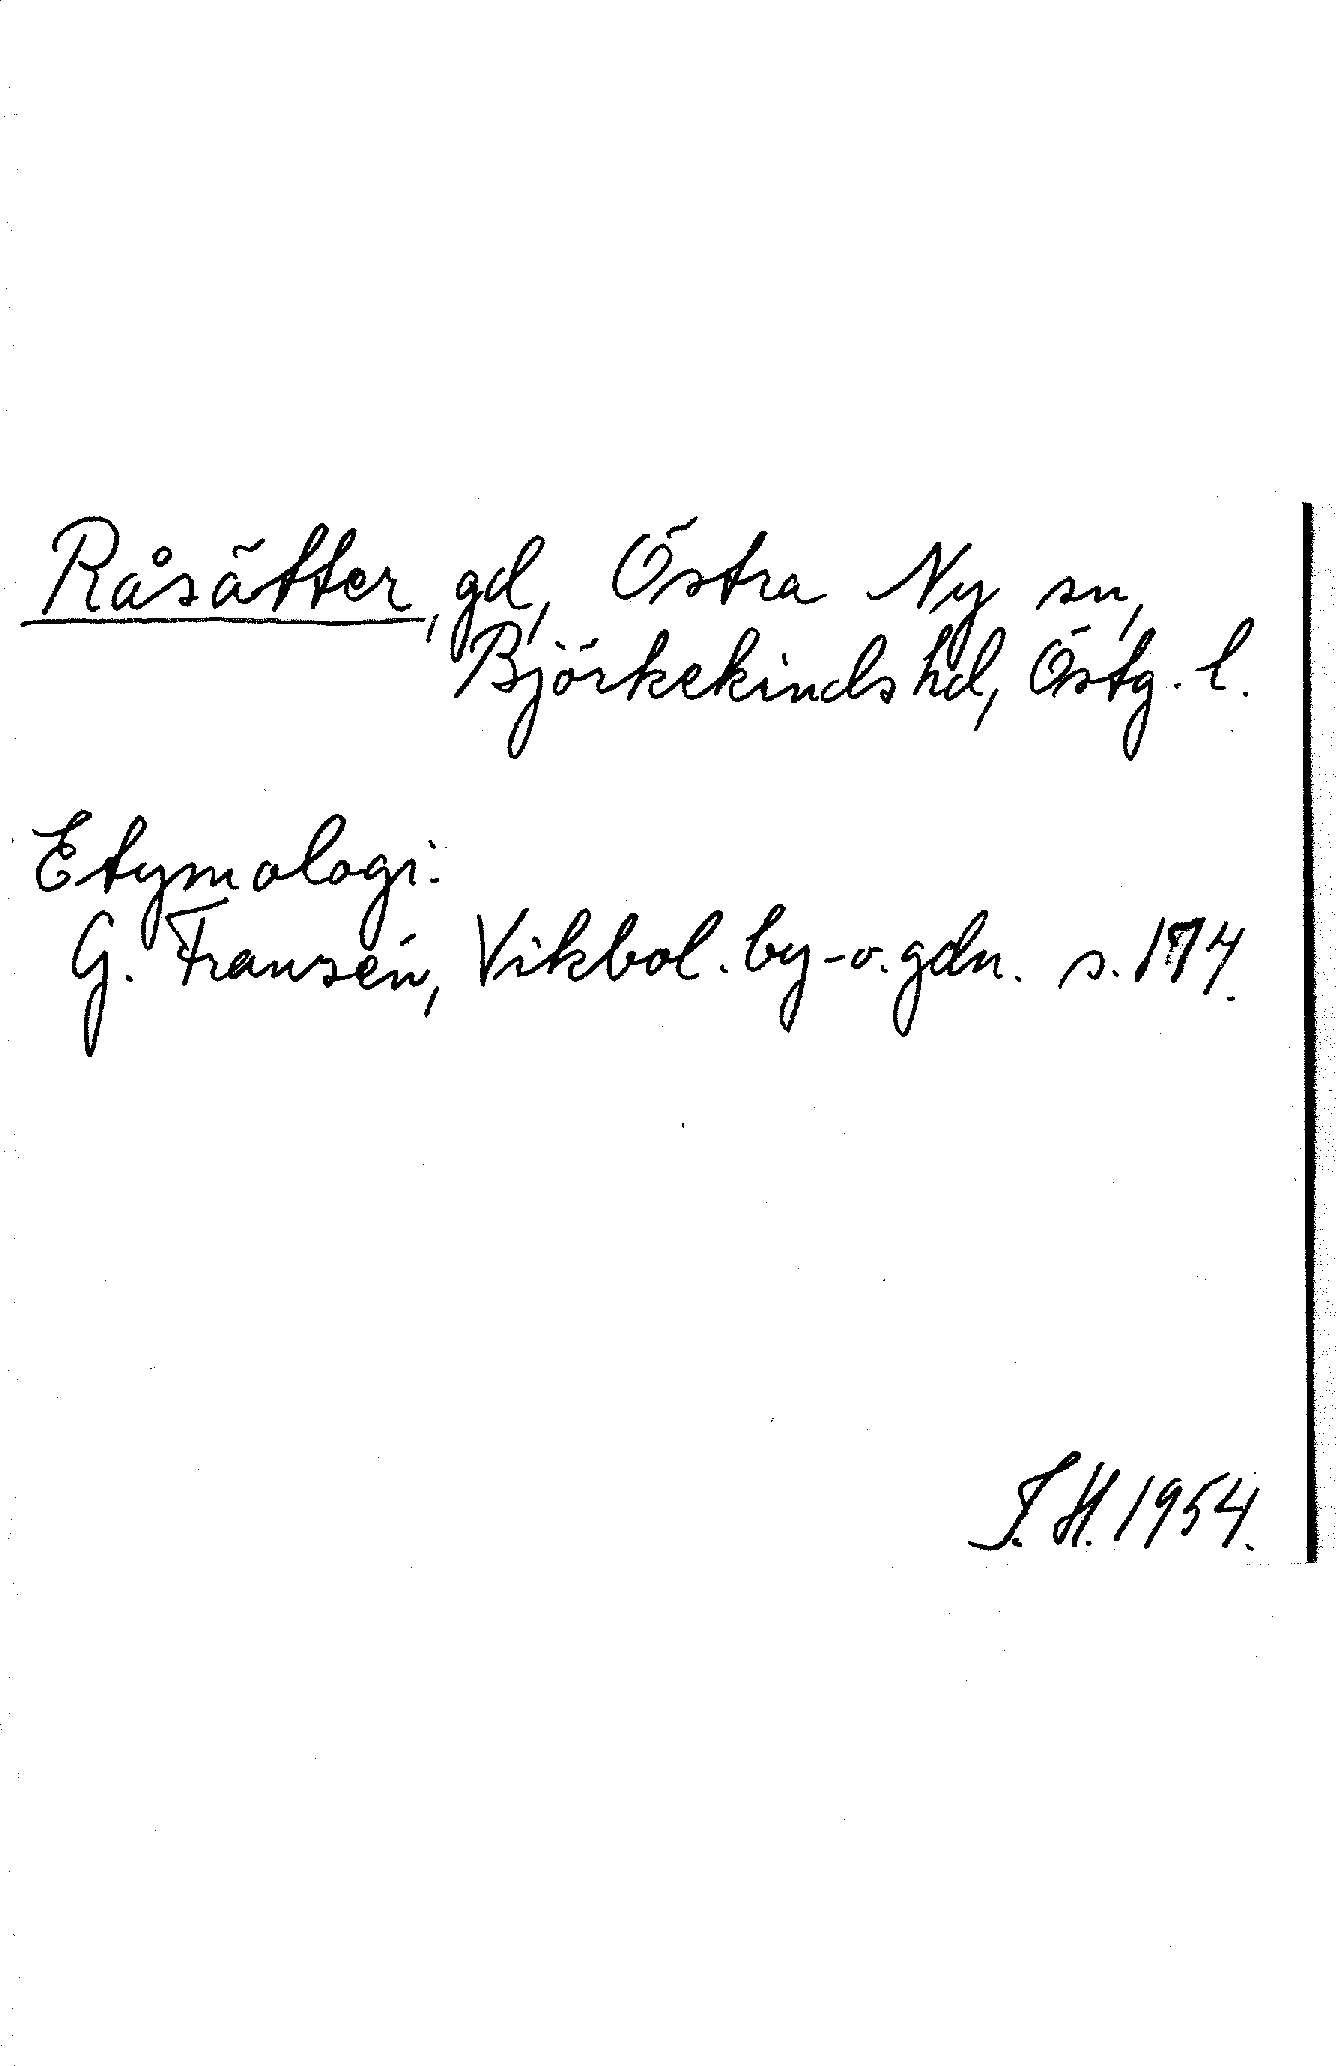 Råsätter, gd, Östra Ny sn,
Björkekinds hd, Östg. l.
Etymologi:
G. Franzén, Vikbol. by- o. gdn. s. 174.
I. H. 1954.